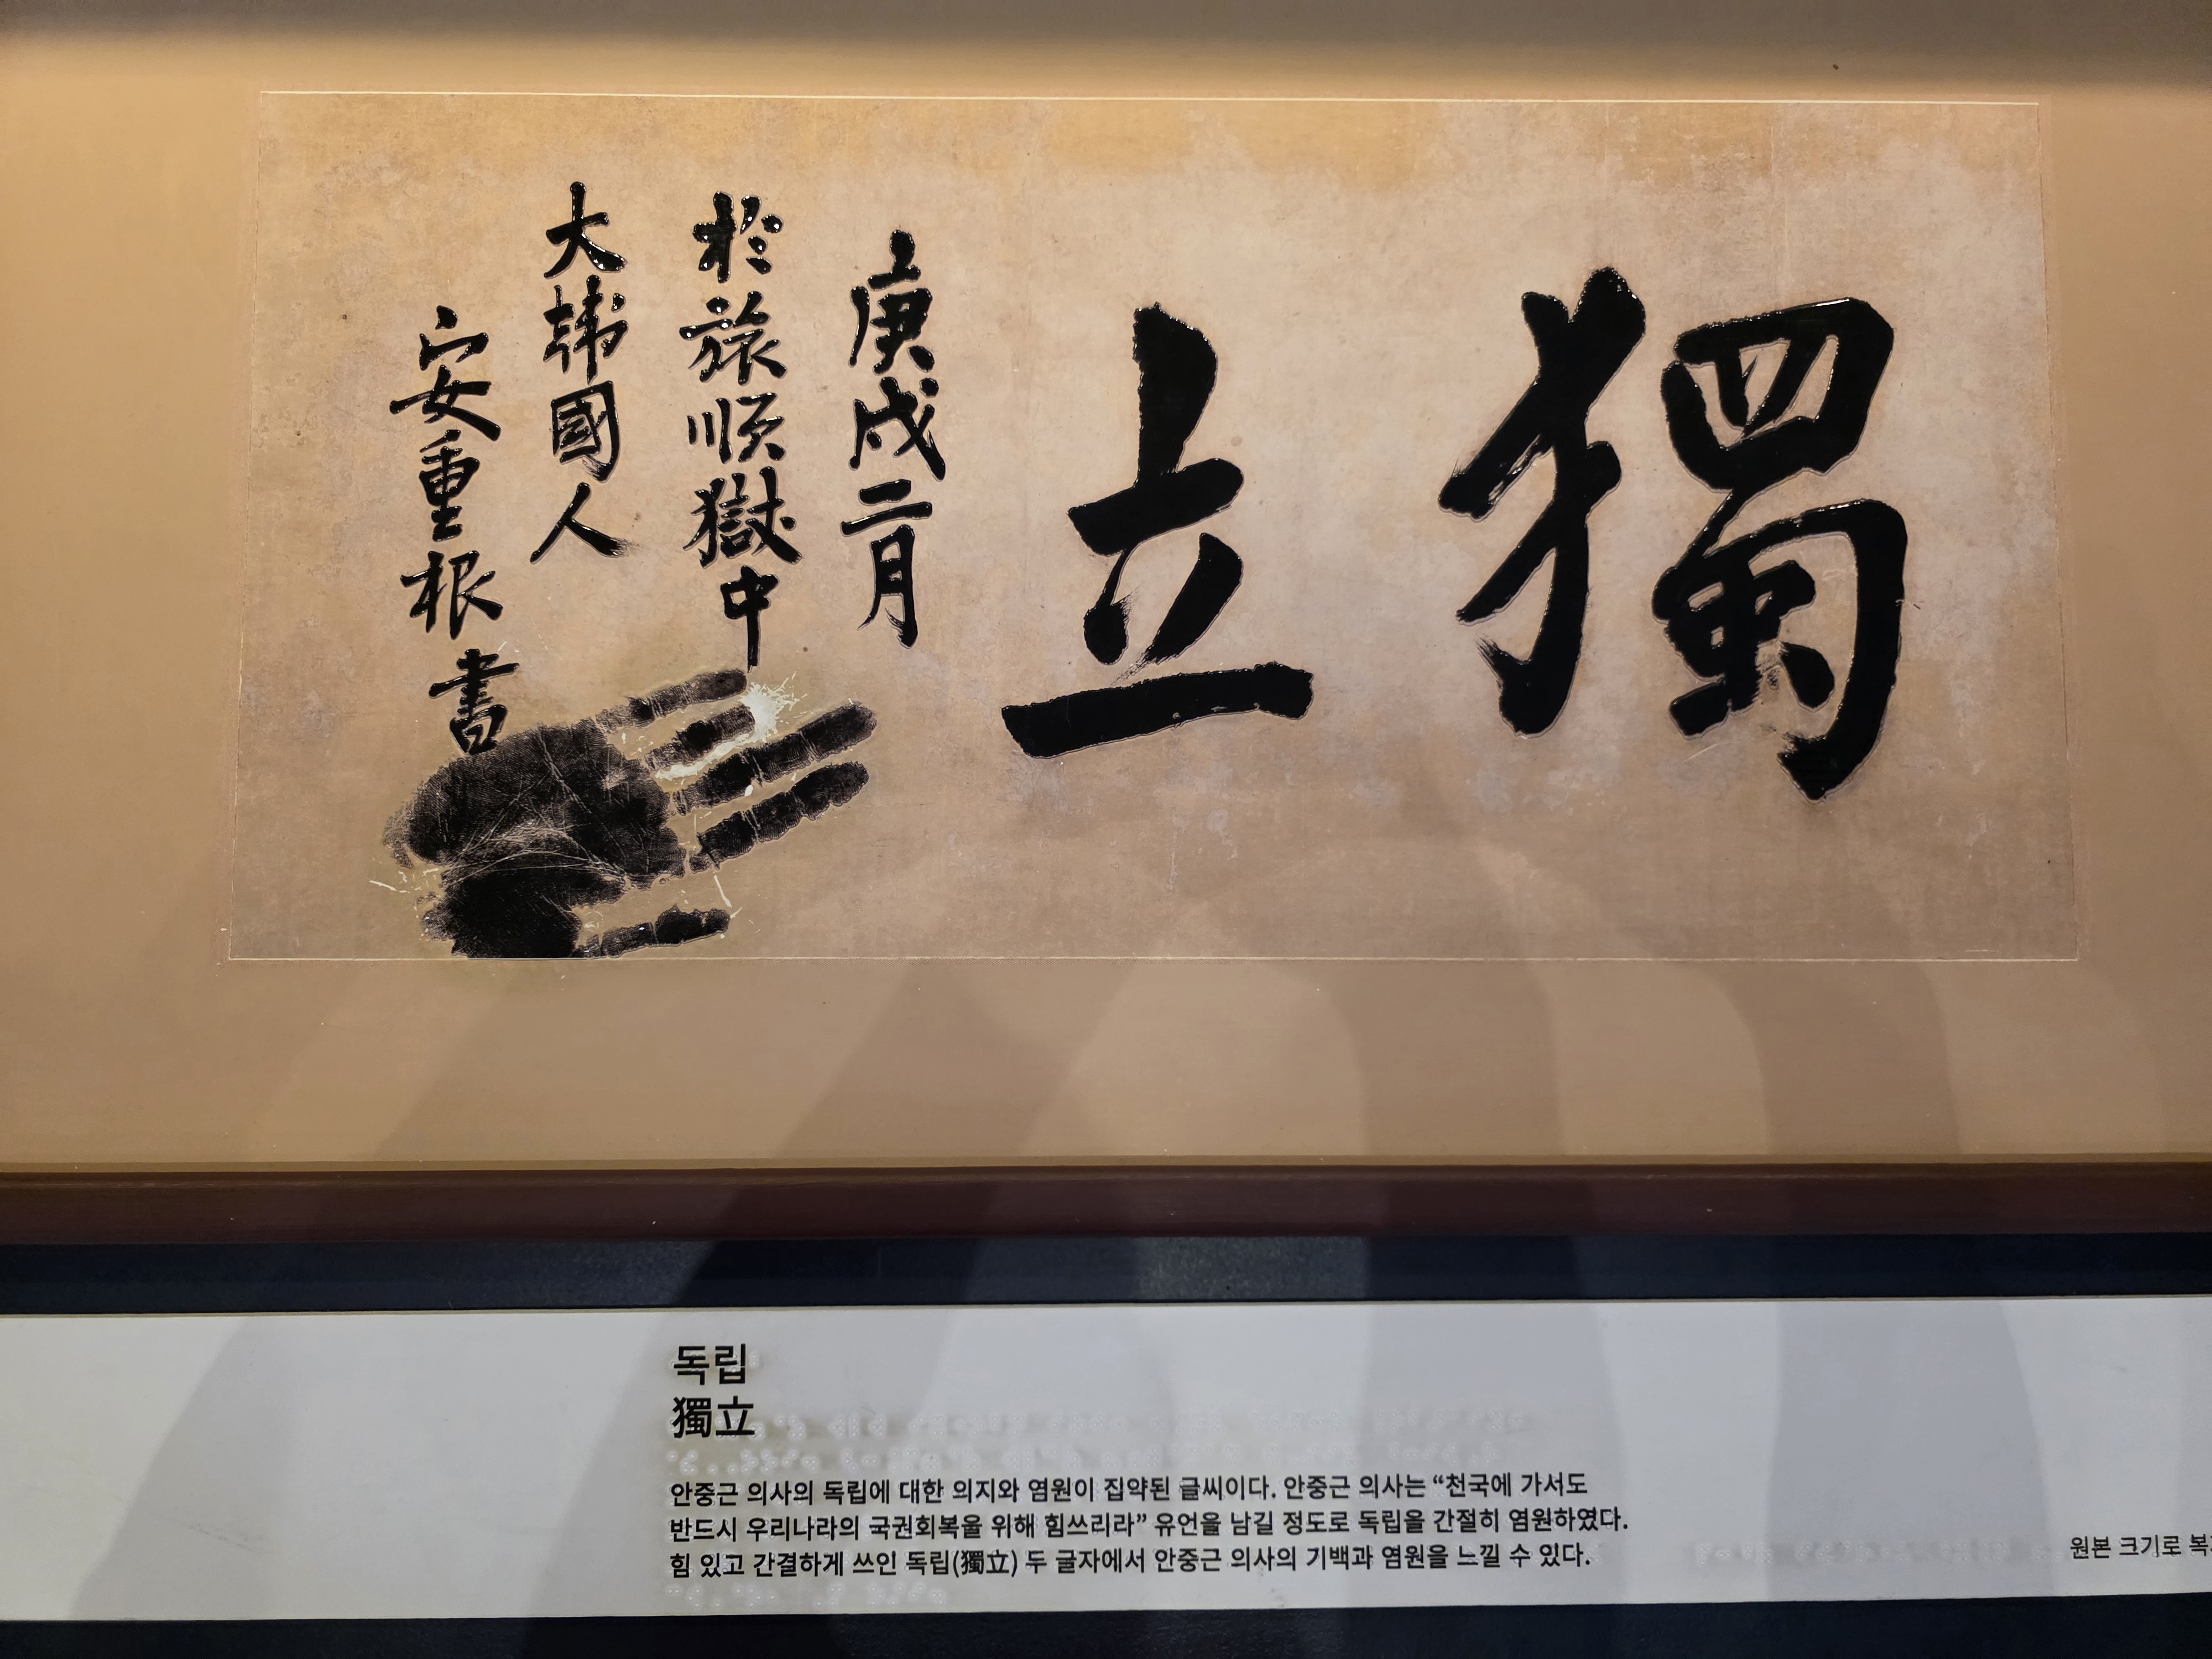 獨立
庚戌二月
於旅順獄中
大韓國人
安重根書
독립
獨立
안중근 의사의 독립에 대한 의지와 염원이 집약된 글씨이다. 안중근 의사는 “천국에 가서도
반드시 우리나라의 국권회복을 위해 힘쓰리라” 유언을 남길 정도로 독립을 간절히 염원하였다.
힘 있고 간결하게 쓰인 독립(獨立) 두 글자에서 안중근 의사의 기백과 염원을 느낄 수 있다.
원본 크기로